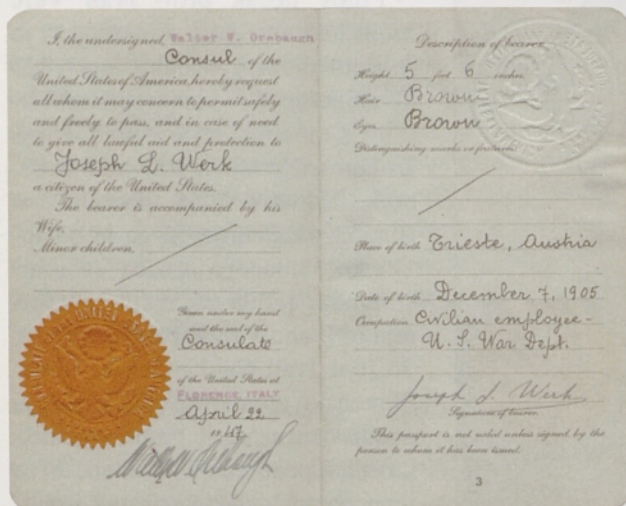 I, the undersigned, Walter W. Orebaugh
Consul of the
United States of America, hereby request
all whom it may concern to permit safely
and freely to pass, and in case of need
to give all lawful aid and protection to
Joseph L. Werk
a citizen of the United States.
The bearer is accompanied by his
Wife,
Minor children,
Given under my hand
and the seal of the
Consulate
of the United States at
FLORENCE, ITALY
April 22
1947
Description of bearer
Height 5 feet 6 inches
Hair Brown
Eyes Brown
Distinguishing marks or features
Place of birth Trieste, Austria
Date of birth December 7, 1905
Occupation Civilian employee-
U. S. War Dept.
Joseph L. Werk
Signature of bearer.
This passport is not valid unless signed by the
person to whom it has been issued.
3